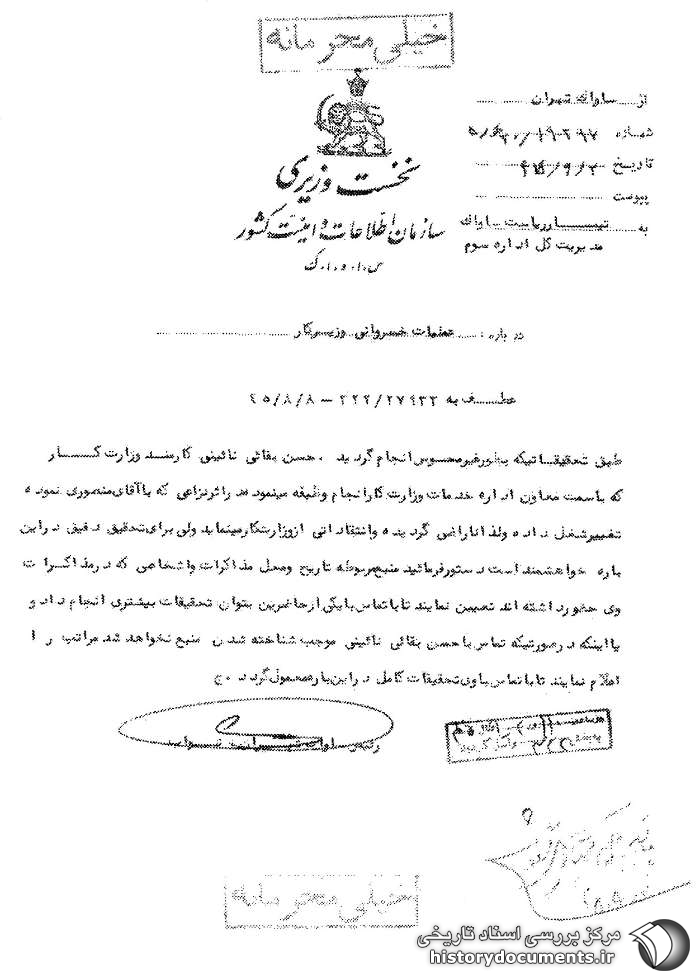 خیلی محرمانه
از ساواک تهران
شماره
تاریخ
پیوست
به تیمسار ریاست ساواک
مدیریت کل اداره سوم
نخست وزیری
سازمان اطلاعات و امنیت کشور
س.ا.و.ا.ک
درباره : عطاءالله خسروانی وزیر کار
عطف به ۳۲۲/۲۷۹۳۳ – ۴۵/۸/۸
طبق تحقیقاتیکه بطور غیرمحسوس انجام گردید . حسن بقائی نائینی کارمند وزارت کار
که باسمت معاون اداره خدمات وزارت کار انجام وظیفه مینمود در اثر نزاعی که با آقای منصوری نموده
تغییر شغل داده ولذا ناراضی گردیده وانتقاداتی از وزارت کار مینماید ولی برای تحقیق دقیق در این
باره خواهشمند است دستور فرمائید منبع مربوطه تاریخ ومحل مذاکرات واشخاصی که در مذاکرات
وی حضور داشته اند تعیین نمایند تا با تماس با یکی از حاضرین بتوان تحقیقات بیشتری انجام داد و
یا اینکه در صورتیکه تماس با حسن بقائی نائینی موجب شناخته شدن منبع نخواهد شد مراتب را
اعلام نمایند تا با تماس باوی تحقیقات کامل در این باره معمول گردد . ج
رئیس ساواک تهران
خیلی محرمانه
مرکز بررسی اسناد تاریخی
historydocuments.ir